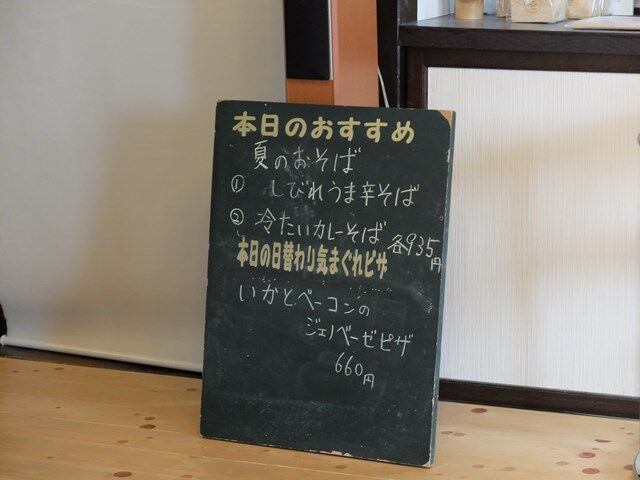 本日のおすすめ
夏のおそば
① しびれうま辛そば
② 冷たいカレーそば 各935円
本日の日替わり気まぐれピザ
いかとベーコンの
ジェノベーゼピザ
660円